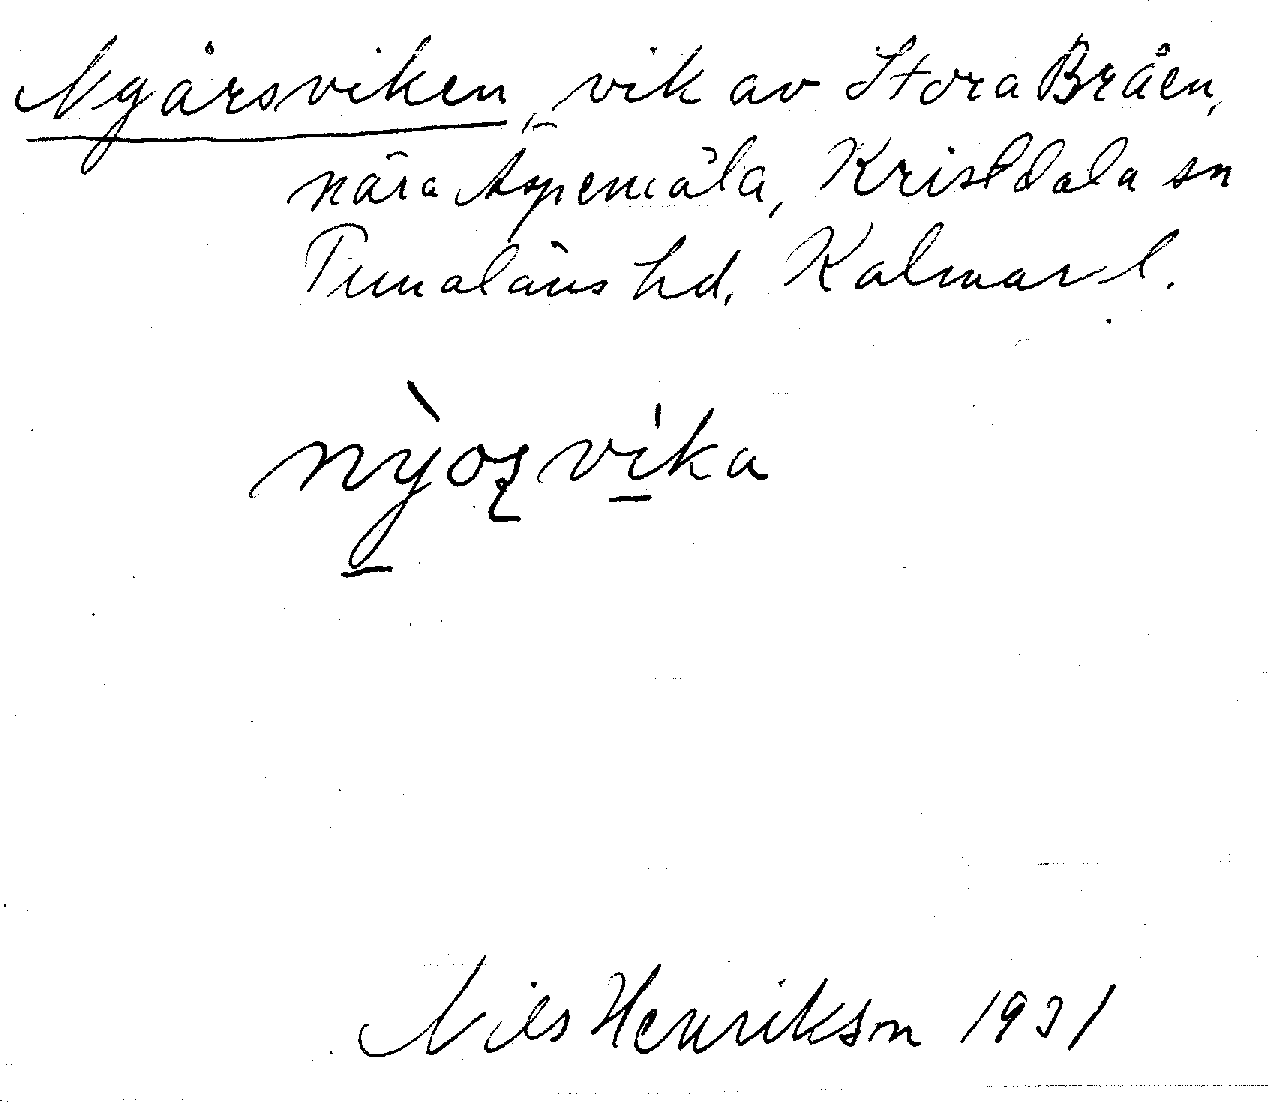 Nyårsviken, vik av Stora Bråen,
nära Aspemåla, Kristdala sn
Tunaläns hd. Kalmar l.
nỳoʂvíka
Nils Henrikson 1931